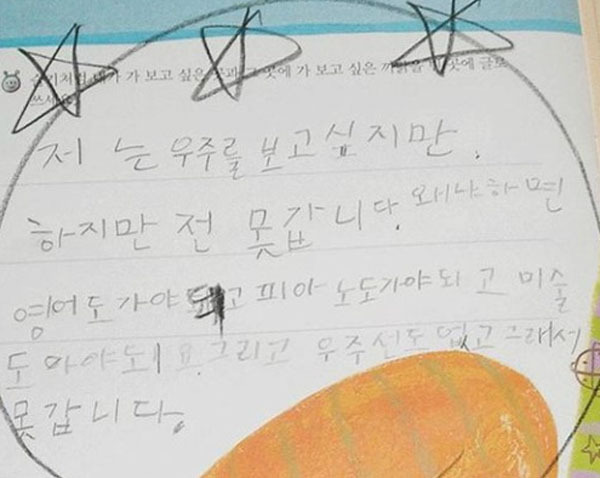 슬기처럼 내가 가 보고 싶은 곳과 그 곳에 가 보고 싶은 까닭을 빈 곳에 글로
쓰세요
저 는 우주를 보고싶지만.
하지만 전 못갑니다. 왜냐하면
영어도가야되고 피아노도가야되고 미술
도 가야돼요. 그리고 우주선도 없고 그래서
못갑니다.